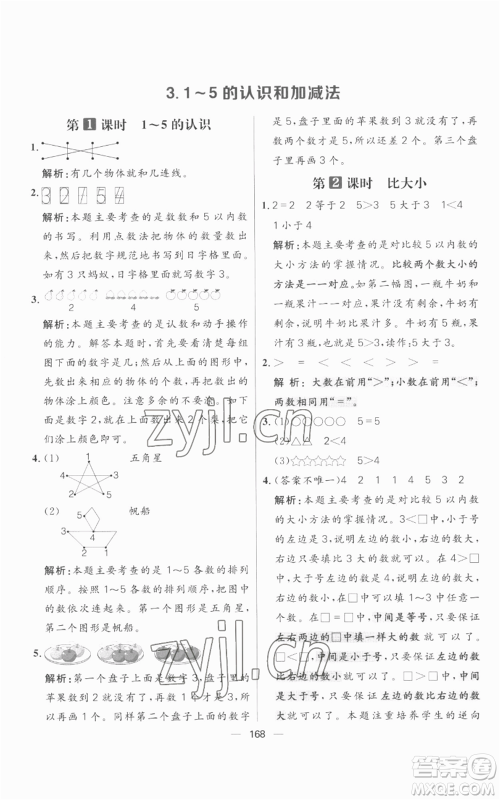 3. 1～5 的认识和加减法
第 1 课时 1～5 的认识
1.
解析：有几个物体就和几连线。
2. 3 2 1 5 4
解析：本题主要考查的是数数和 5 以内数
的书写。利用点数法把物体的数量数
出来，然后把数字规范地书写到日字格里面。
如有 3 只蚂蚁，日字格里面就书写 3。
3.
2 4 5
解析：本题主要考查的是认数和动手操作
的能力。解答本题时，首先要看清楚每组
图下面的数字是几，然后从上面的图形中，
按照从左往右的顺序给相应数量的图形涂
上颜色。注意不要多涂也不要少涂。如第
1 组下面是数字 2，就在上面图形中数出 2 个梨，把
它们涂上颜色即可。
4. (1) 1 五角星
4 3
5 2
(2) 1 帆船
5 2
4 3
解析：本题主要考查的是 1～5 各数的排列
顺序。按照 1～5 各数的排列顺序，把图中
的数依次连起来。第一个图形是五角星，
第二个图形是帆船。
5.
解析：第一个盘子上面是数字 3，盘子里的
苹果数到 3 正好。第二个盘子上面是数字
4，盘子里的苹果数到 2 就没有了，所以再
画 2 个。同样第三个盘子上面的数字
是 5，盘子里面的苹果数到 3 就没有了，因
为两个数不一样，所以还差 2 个。第三个盘
子里再画 2 个。
第 2 课时 比大小
1. 2＝2 2 等于 2 5＞3 5 大于 3 1＜4
1 小于 4
解析：本题主要考查的是对比较 5 以内数的
大小方法的掌握情况。比较两个数大小的方
法是一一对应。如第二幅图，一瓶牛奶和
一瓶果汁对应，一一对应后，有牛奶没有果
汁对应有剩余，说明牛奶比果汁多。所以牛奶
有 5 瓶，果汁有 3 瓶，5＞3，读作：5 大于 3。
2. ＞ ＝ ＜ ＞ ＜ ＜
解析：大数在前用“＞”；小数在前用“＜”；
两数相同用“＝”。
3. (1)○○○○○ 5＝5
(2)△△ 2＜4
(3)☆☆☆☆☆ 5＞4
4. (答案不唯一)4 1 4 1 3 2 5 4
解析：本题主要考查的是对比较 5 以内数
的大小方法的掌握情况。3＜□中，小于号
在中间，说明左边的数比右边的数小，左边是 3，
右边只要填大于 3 的数就可以了。4＞□
中，大于号在中间，说明左边的数大，右边
的数小，左边是 4，右边在 1～3 中任意填一
个数即可。□＝□中，中间是等号，只要保证
左右两边的□中填一样大的数就可以了。
□＜□中，中间是小于号，只要保证左边的数
比右边的数小就可以了。□＞□中，中间是
大于号，只要保证左边的数比右边的数大
就可以了。本题注重培养学生的逆向
168
zyjl.cn
zyjl.cn
答案圈
MXQE.COM